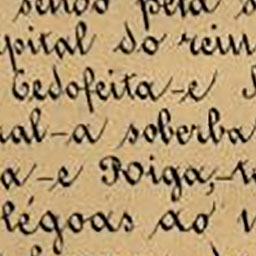 sendo pela s
pital do rein
Cedofeita-e
al-a soberba
a-e Roiga,-te
légoas ao